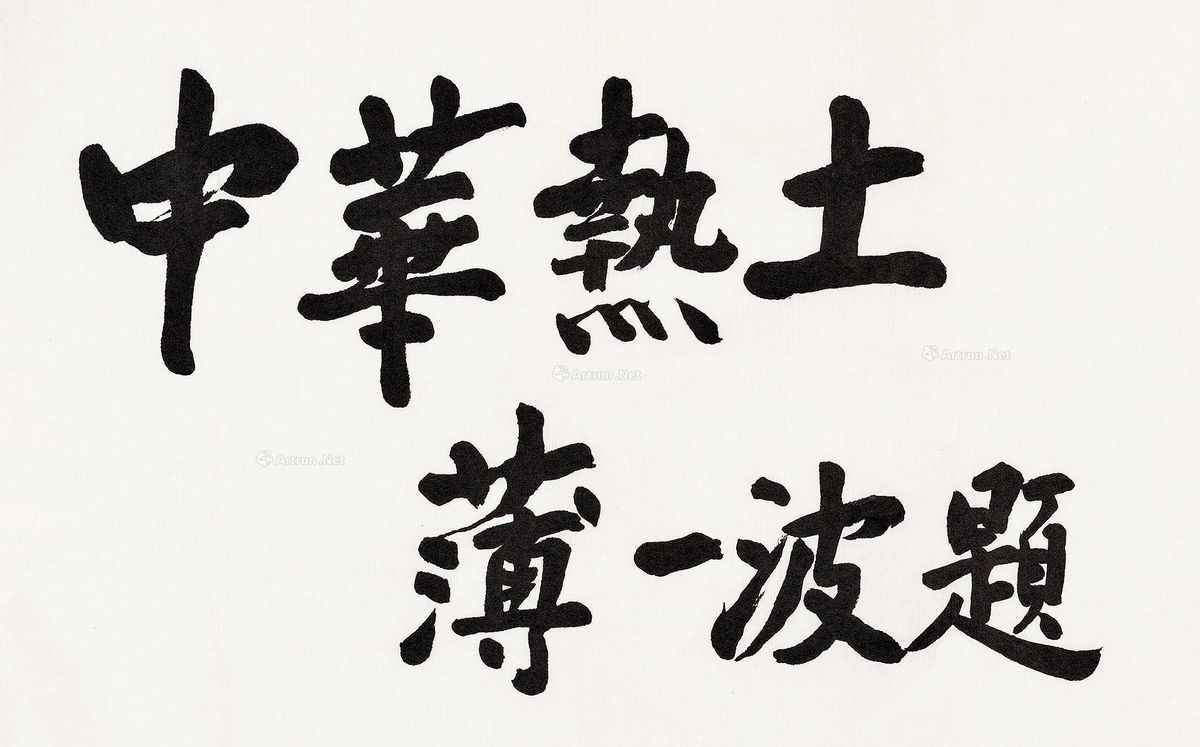 中華熱土
薄一波題
Artron.Net
Artron.Net
Artron.Net